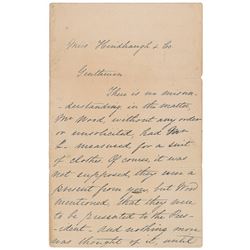 Miss Hindhaugh & Co
Gentlemen
There is no misun-
-derstanding in the matter,
Mr Wood, without any order
or unsolicited, had Mr
L. measured for a suit
of clothes. Of course, it was
not supposed they were a
present from you, but Wood
mentioned, that they were
to be presented to the Pres-
ident - and nothing more
was thought of it, until